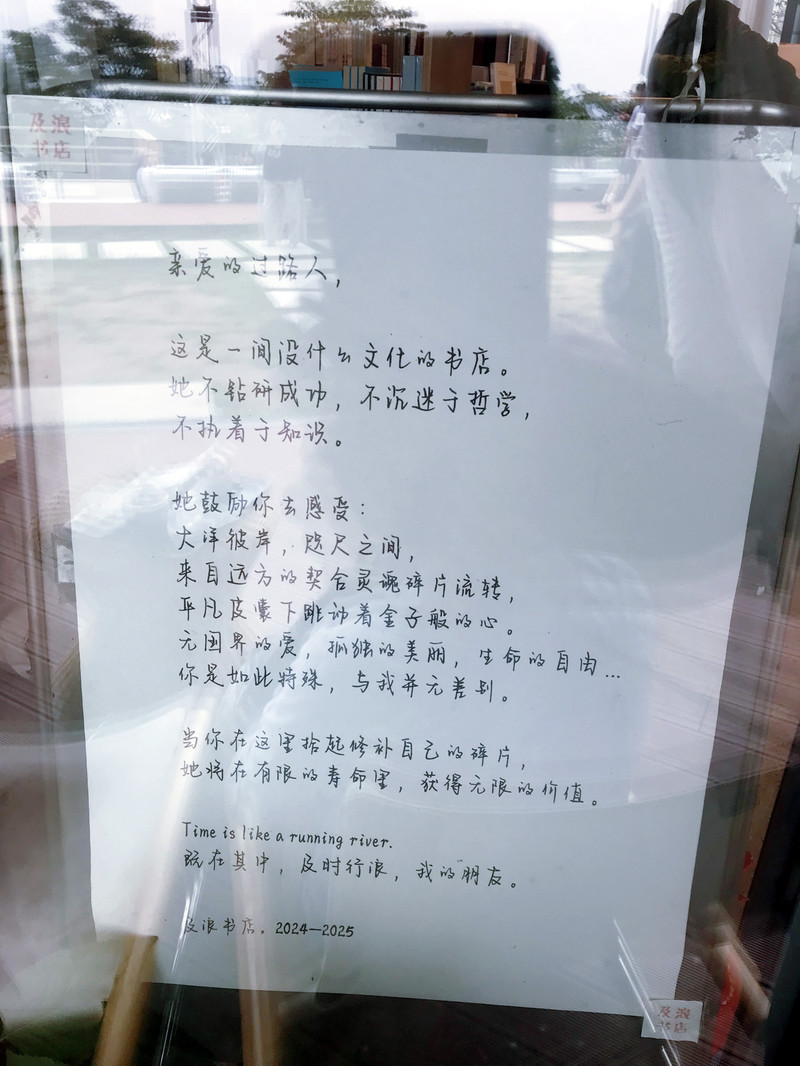 及浪
书店
亲爱的过路人,
这是一间没什么文化的书店。
她不钻研成功, 不沉迷于哲学,
不执着于知识。
她鼓励你去感受:
大洋彼岸, 咫尺之间,
来自远方的契合灵魂碎片流转,
平凡皮囊下跳动着金子般的心。
无国界的爱, 孤独的美丽, 生命的自由...
你是如此特殊, 与我并无差别。
当你在这里拾起修补自己的碎片,
她将在有限的寿命里, 获得无限的价值。
Time is like a running river.
既在其中, 及时行浪, 我的朋友。
及浪书店, 2024—2025
及浪
书店